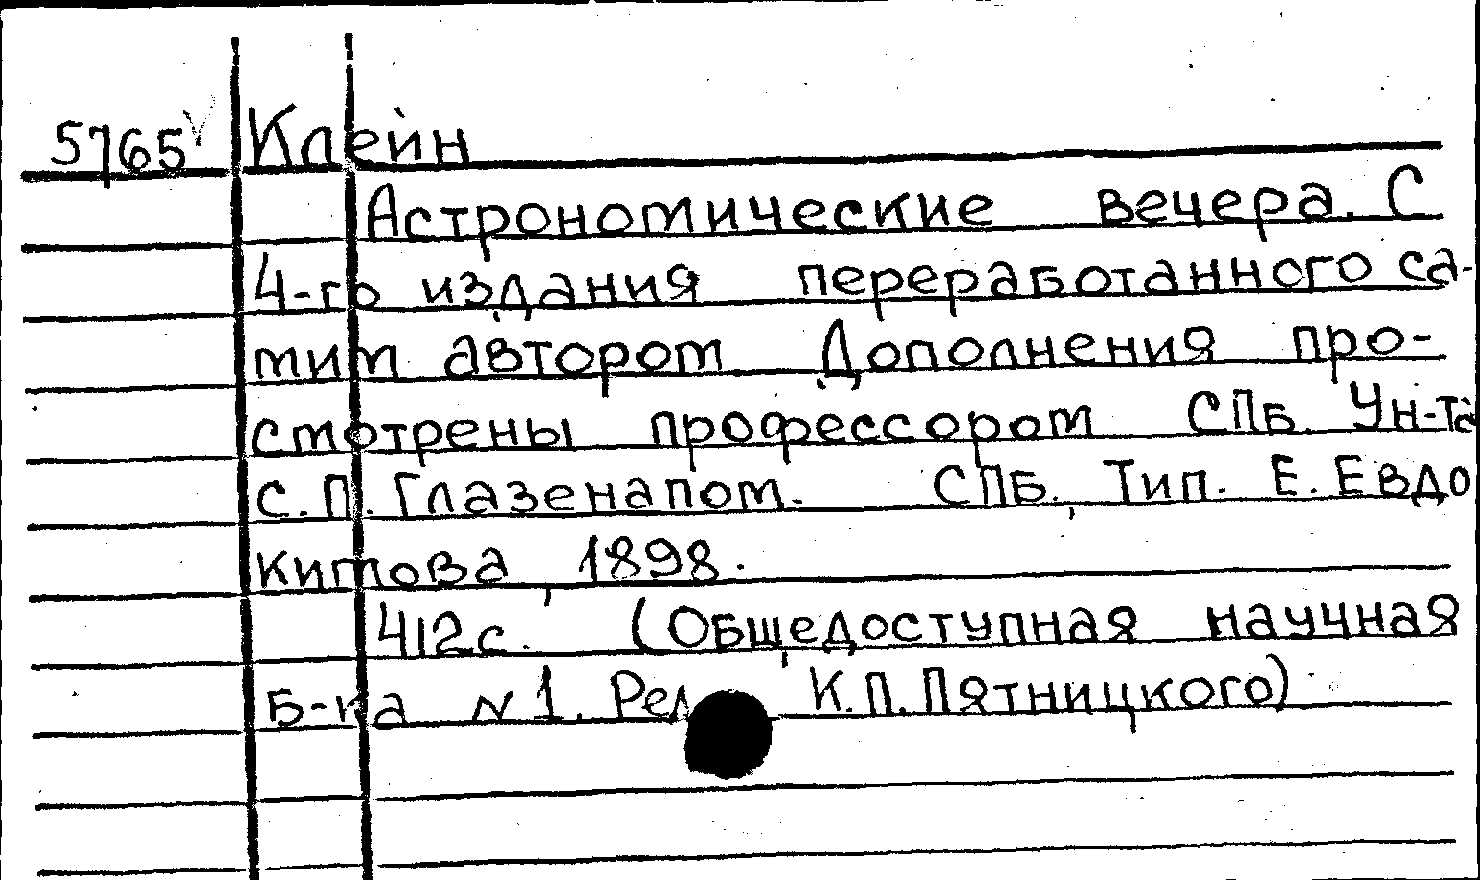 5765 Клейн
Астрономические вечера. С
4-го издания переработанного са-
мим автором Дополнения про-
смотрены профессором СПБ. Ун-та
С. П. Глазенапом. СПБ., Тип. Е. Евдо
кимова, 1898.
412с. (Общедоступная научная
Б-ка №1. Ред К.П. Пятницкого)